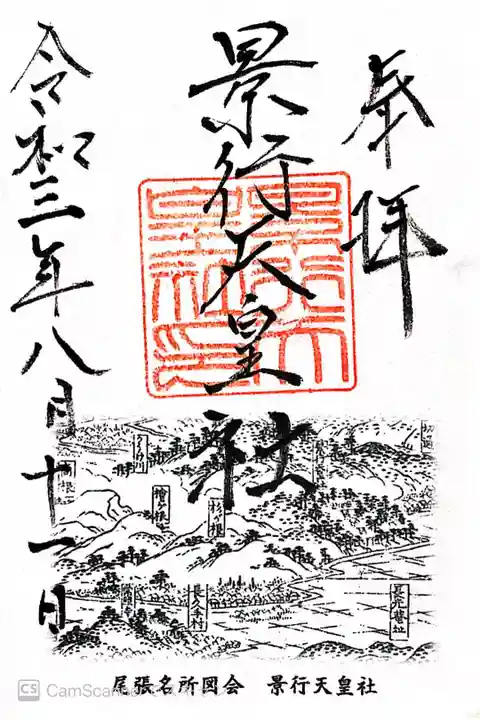 奉拝
景行天皇社
令和三年八月十一日
杉ノ根
長久手村
尾張名所図会 景行天皇社
CS CamScanner